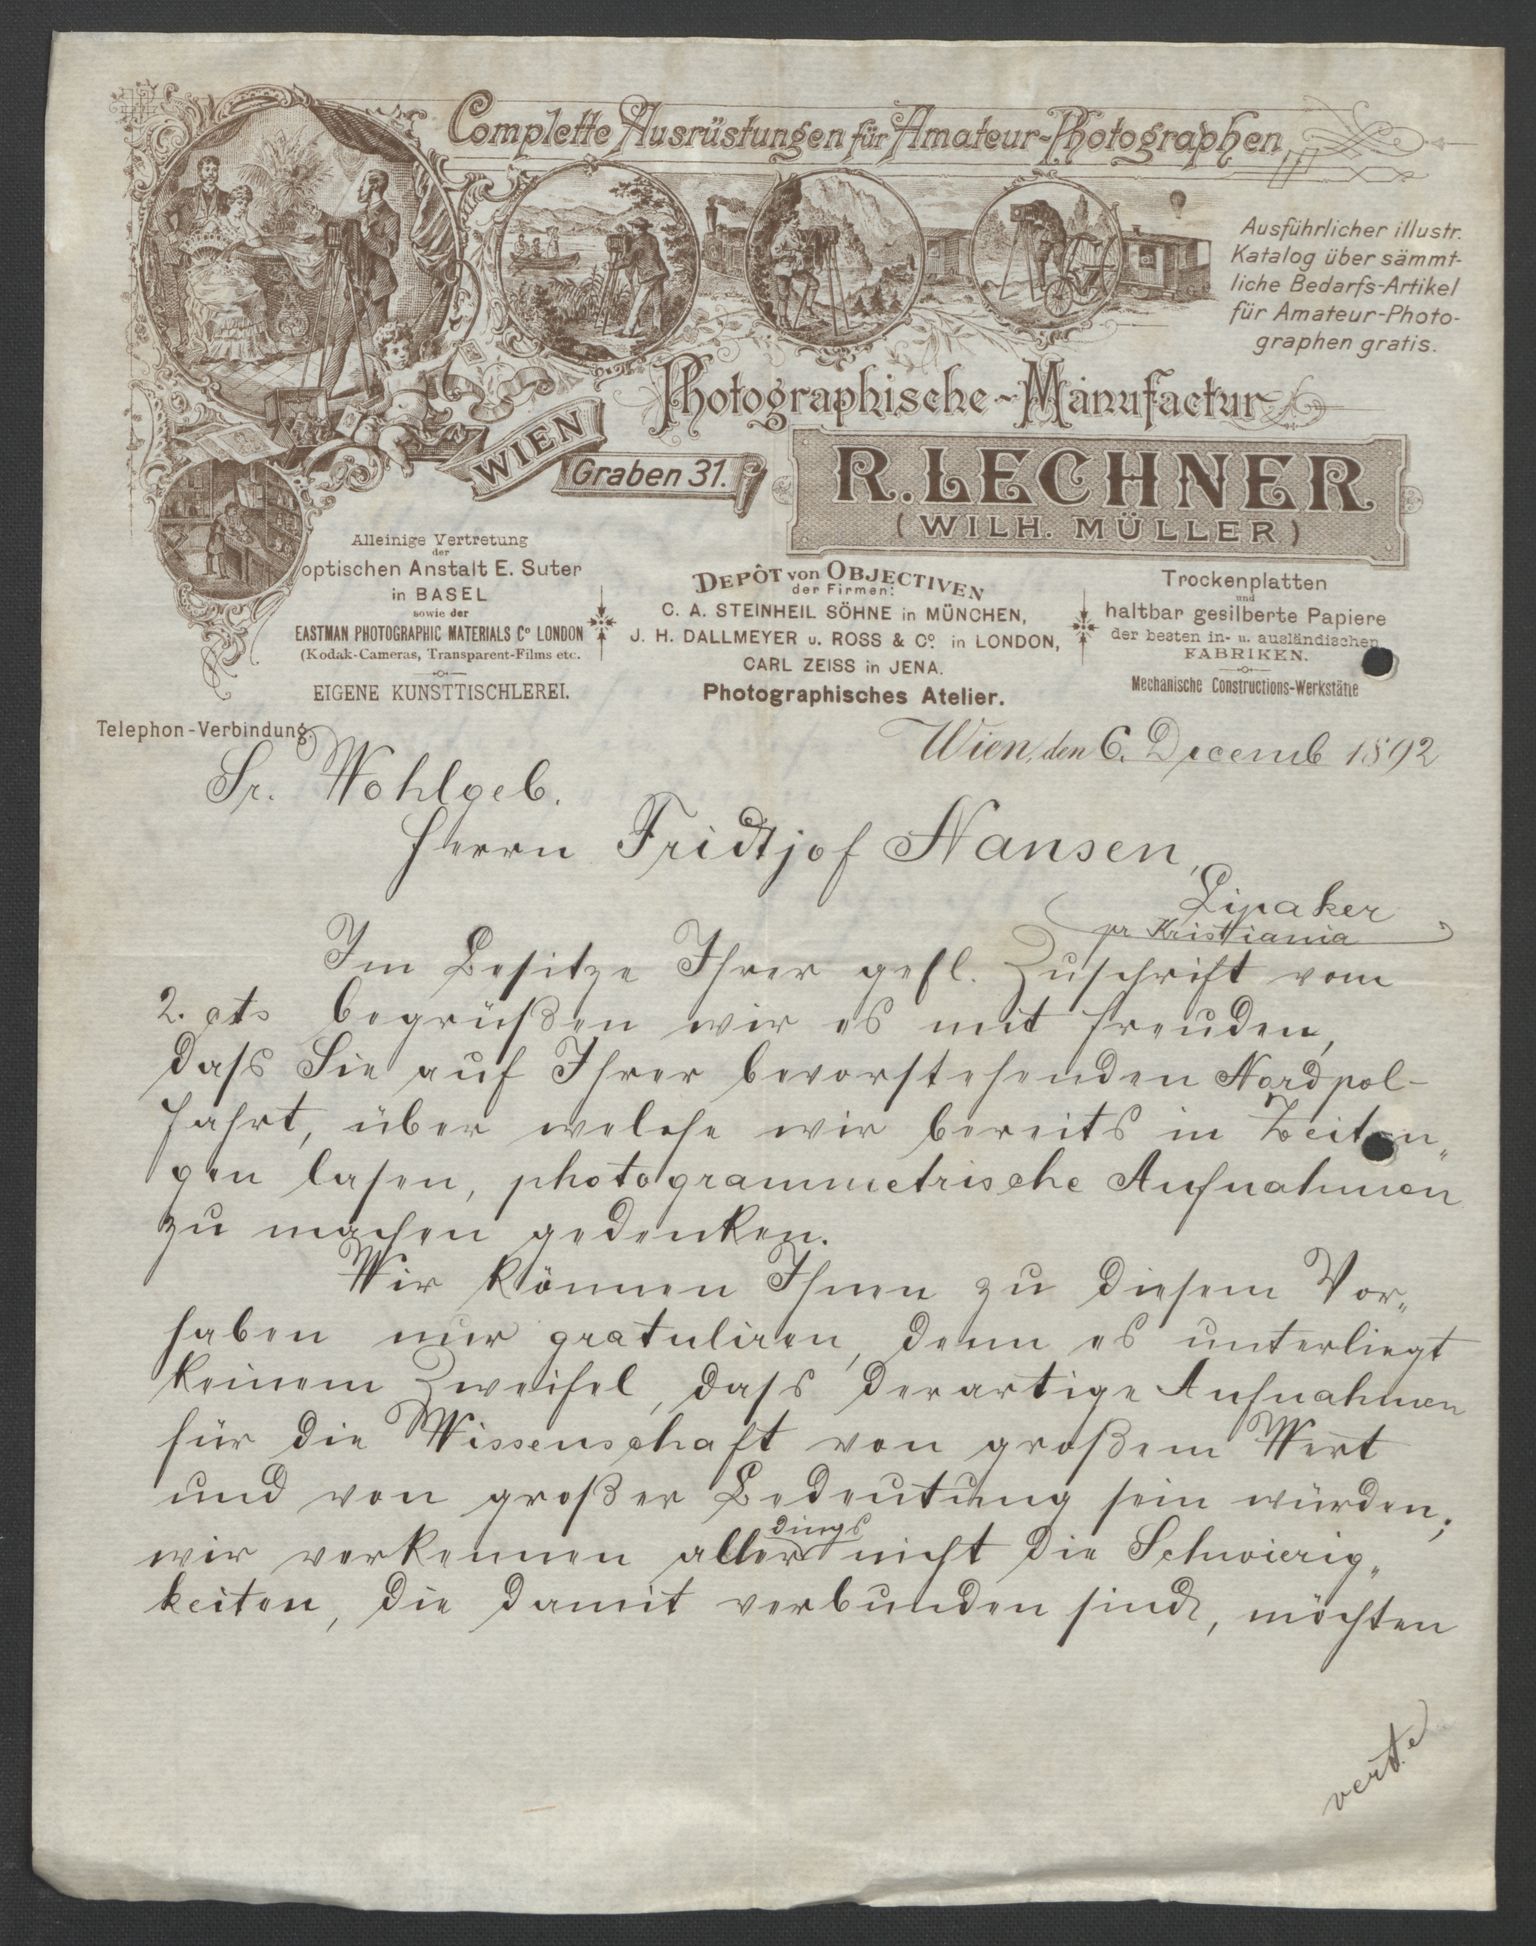 Complette Ausrüstungen für Amateur-Photographen
Ausführlicher illustr.
Katalog über sämmt-
liche Bedarfs-Artikel
für Amateur-Photo-
graphen gratis.
Photographische-Manufactur
WIEN
Graben 31.
R. LECHNER
(WILH. MÜLLER)
Alleinige Vertretung
der
optischen Anstalt E. Suter
in BASEL
sowie der
EASTMAN PHOTOGRAPHIC MATERIALS Co LONDON
(Kodak-Cameras, Transparent-Films etc.
EIGENE KUNSTTISCHLEREI.
DEPÔT von OBJECTIVEN
der Firmen:
C. A. STEINHEIL SÖHNE in MÜNCHEN,
J. H. DALLMEYER u. ROSS & Co. in LONDON,
CARL ZEISS in JENA.
Photographisches Atelier.
Trockenplatten
und
haltbar gesilberte Papiere
der besten in- u. ausländischen
FABRIKEN.
Mechanische Constructions-Werkstätte
Telephon-Verbindung.
Wien, den 6. Decemb 1892
Sr. Wohlgeb.
Herrn Fridtjof Nansen,
Lipaker
pr Kristiania
Im Besitze Ihrer gefl. Zuschrift vom
2. cts begrüßen wir es mit Freuden,
dass Sie auf Ihrer bevorstehenden Nordpol-
fahrt, über welche wir bereits in Zeitun„
gen lasen, photogrammetrische Aufnahmen
zu machen gedenken.
Wir können Ihnen zu diesem Vor„
haben nur gratuliren, denn es unterliegt
keinem Zweifel, dass derartige Aufnahmen
für die Wissenschaft von großem Wert
und von großer Bedeutung sein würden;
wir verkennen allerdings nicht die Schwierig„
keiten, die damit verbunden sind, möchten
vert.